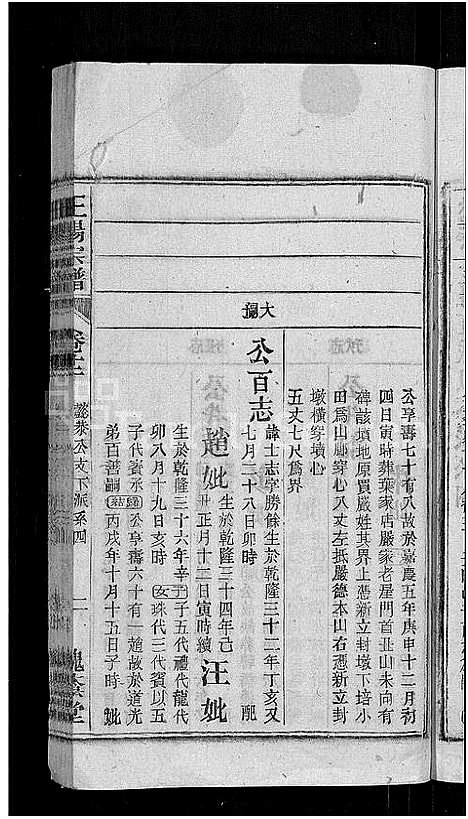 公享壽七十有八故於嘉慶五年庚申十二月初
四日寅時葬葉家店嚴家老屋門首北山朱向有
碑該墳地原買嚴姓其界上憑新立封墩下培小
田為山腳穿心八丈左抵嚴德本山右憑新立封
墩橫穿墳心
五丈七尺為界
大
公百志
諱士志字勝餘生於乾隆三十二年丁亥又
七月二十八日卯時 配
趙妣
生於乾隆三十四年己
丑正月十二日寅時續
汪妣
生於乾隆三十六年辛
卯八月十九日亥時
子子五代禮代龍代
女珠代三代賓以五
子代
公享壽六十有一趙故於道光
弟百善嗣
丙戌年十月十五日子時 妣
王楊宗譜
卷十二
公支下派系四
二
槐蔭堂